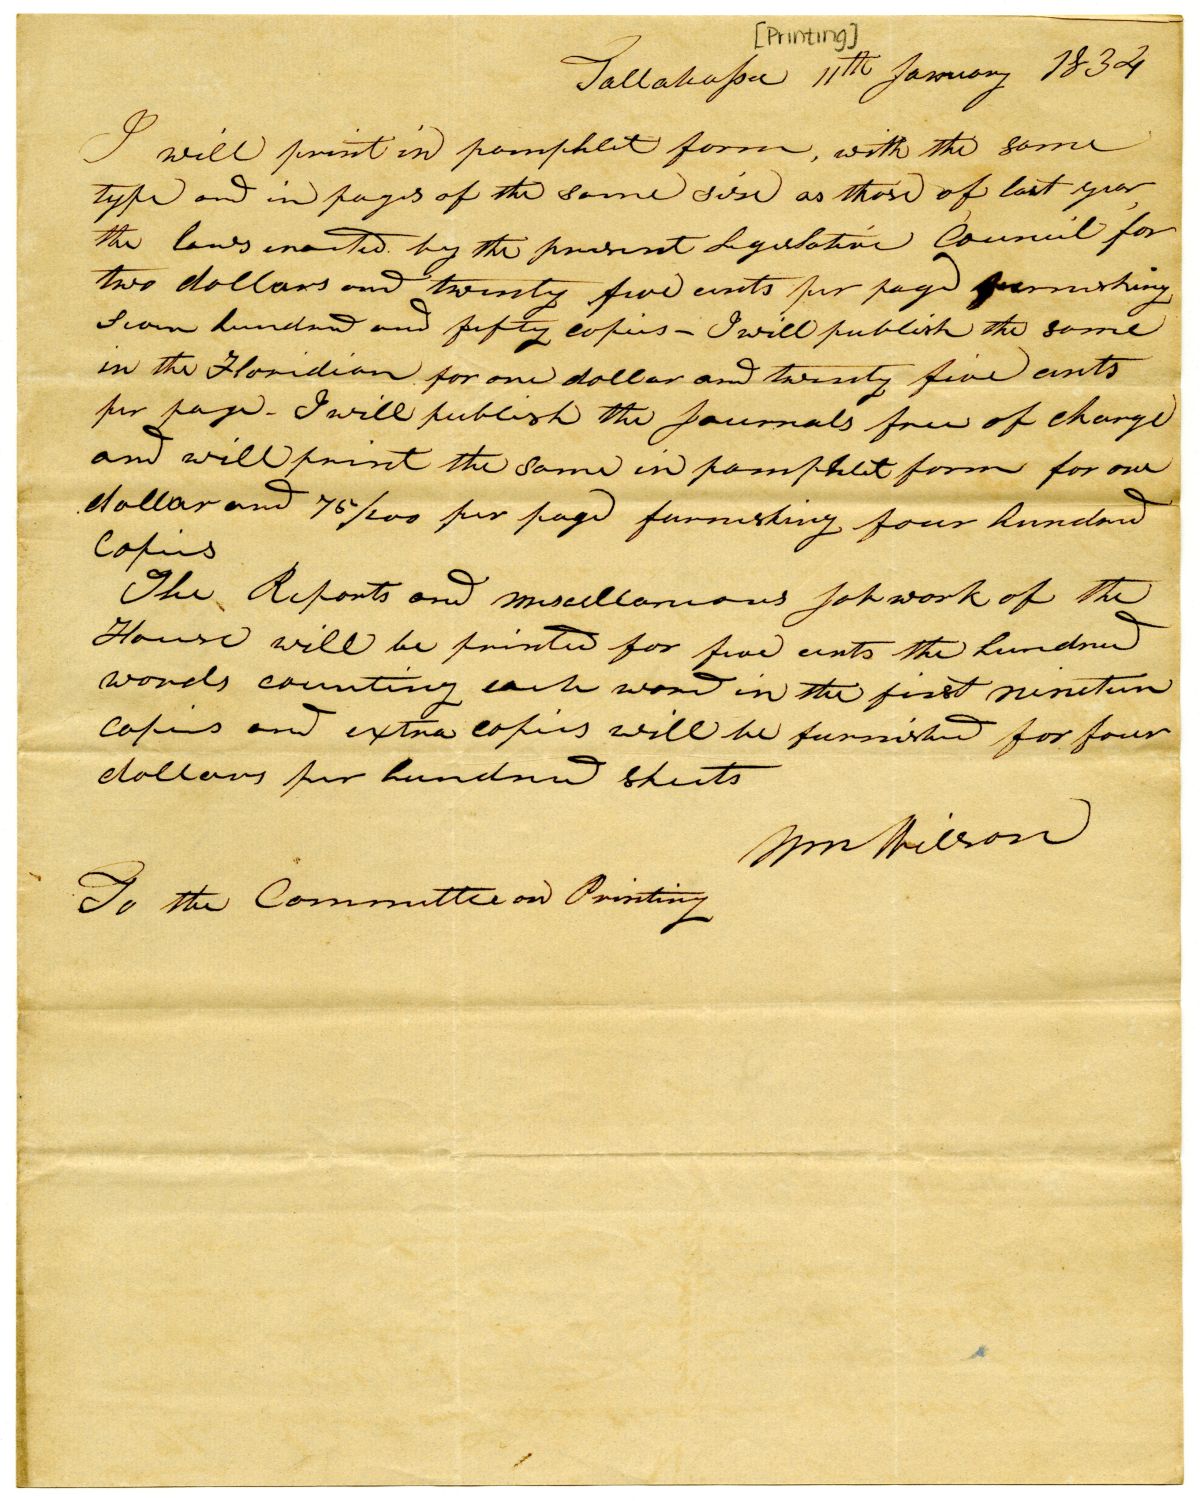 [Printing]
Tallahassee 11th January 1834
I will print in pamphlet form, with the same
type and in pages of the same size as those of last year,
the laws enacted by the present Legislative Council for
two dollars and twenty five cents per page furnishing
seven hundred and fifty copies – I will publish the same
in the Floridian for one dollar and twenty five cents
per page – I will publish the Journals free of charge
and will print the same in pamphlet form for one
dollar and 75/100 per page furnishing four hundred
Copies
The Reports and miscellaneous Job work of the
House will be printed for five cents the hundred
words counting each word in the first nineteen
copies and extra copies will be furnished for four
dollars per hundred sheets
Wm Wilson
To the Committee on Printing